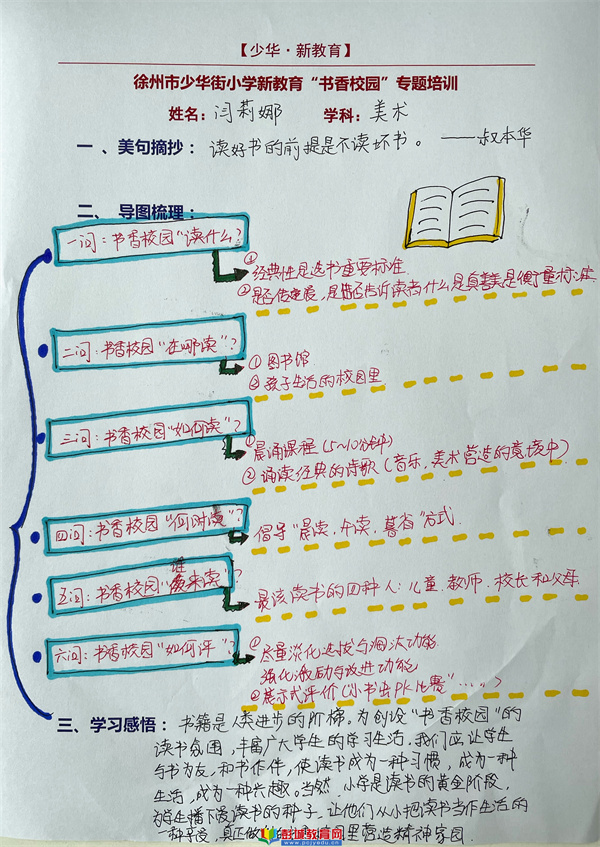 【少华·新教育】
徐州市少华街小学新教育“书香校园”专题培训
姓名：闫莉娜 学科：美术
一、美句摘抄：读好书的前提是不读坏书。——叔本华
二、导图梳理：
一问：书香校园“读什么？
①经典性是选书重要标准
②是否传递爱，是否告诉读者什么是真善美是衡量标准
二问：书香校园“在哪读”？
①图书馆
②孩子生活的校园里
三问：书香校园“如何读”？
①晨诵课程（5~10分钟）
②诵读经典的诗歌（音乐，美术营造的意境中）
四问：书香校园“何时读”？
倡导“晨读，午读，暮省”方式
五问：书香校园“谁来读”？
最该读书的四种人：儿童、教师、校长和父母
六问：书香校园“如何评”？
①尽量淡化选拔与淘汰功能
强化激励与改进功能
②展示式评价（“小书虫PK比赛”……）
三、学习感悟：书籍是人类进步的阶梯。为创设“书香校园”的
读书氛围，丰富广大学生的学习生活，我们应让学生
与书为友，和书作伴，使读书成为一种习惯，成为一种
生活，成为一种兴趣。当然，小学是读书的黄金阶段，
为学生播下爱读书的种子，让他们从小把读书当作生活的
一种享受，真正做 里营造精神家园。
彭城教育网
www.pcjyedu.cn